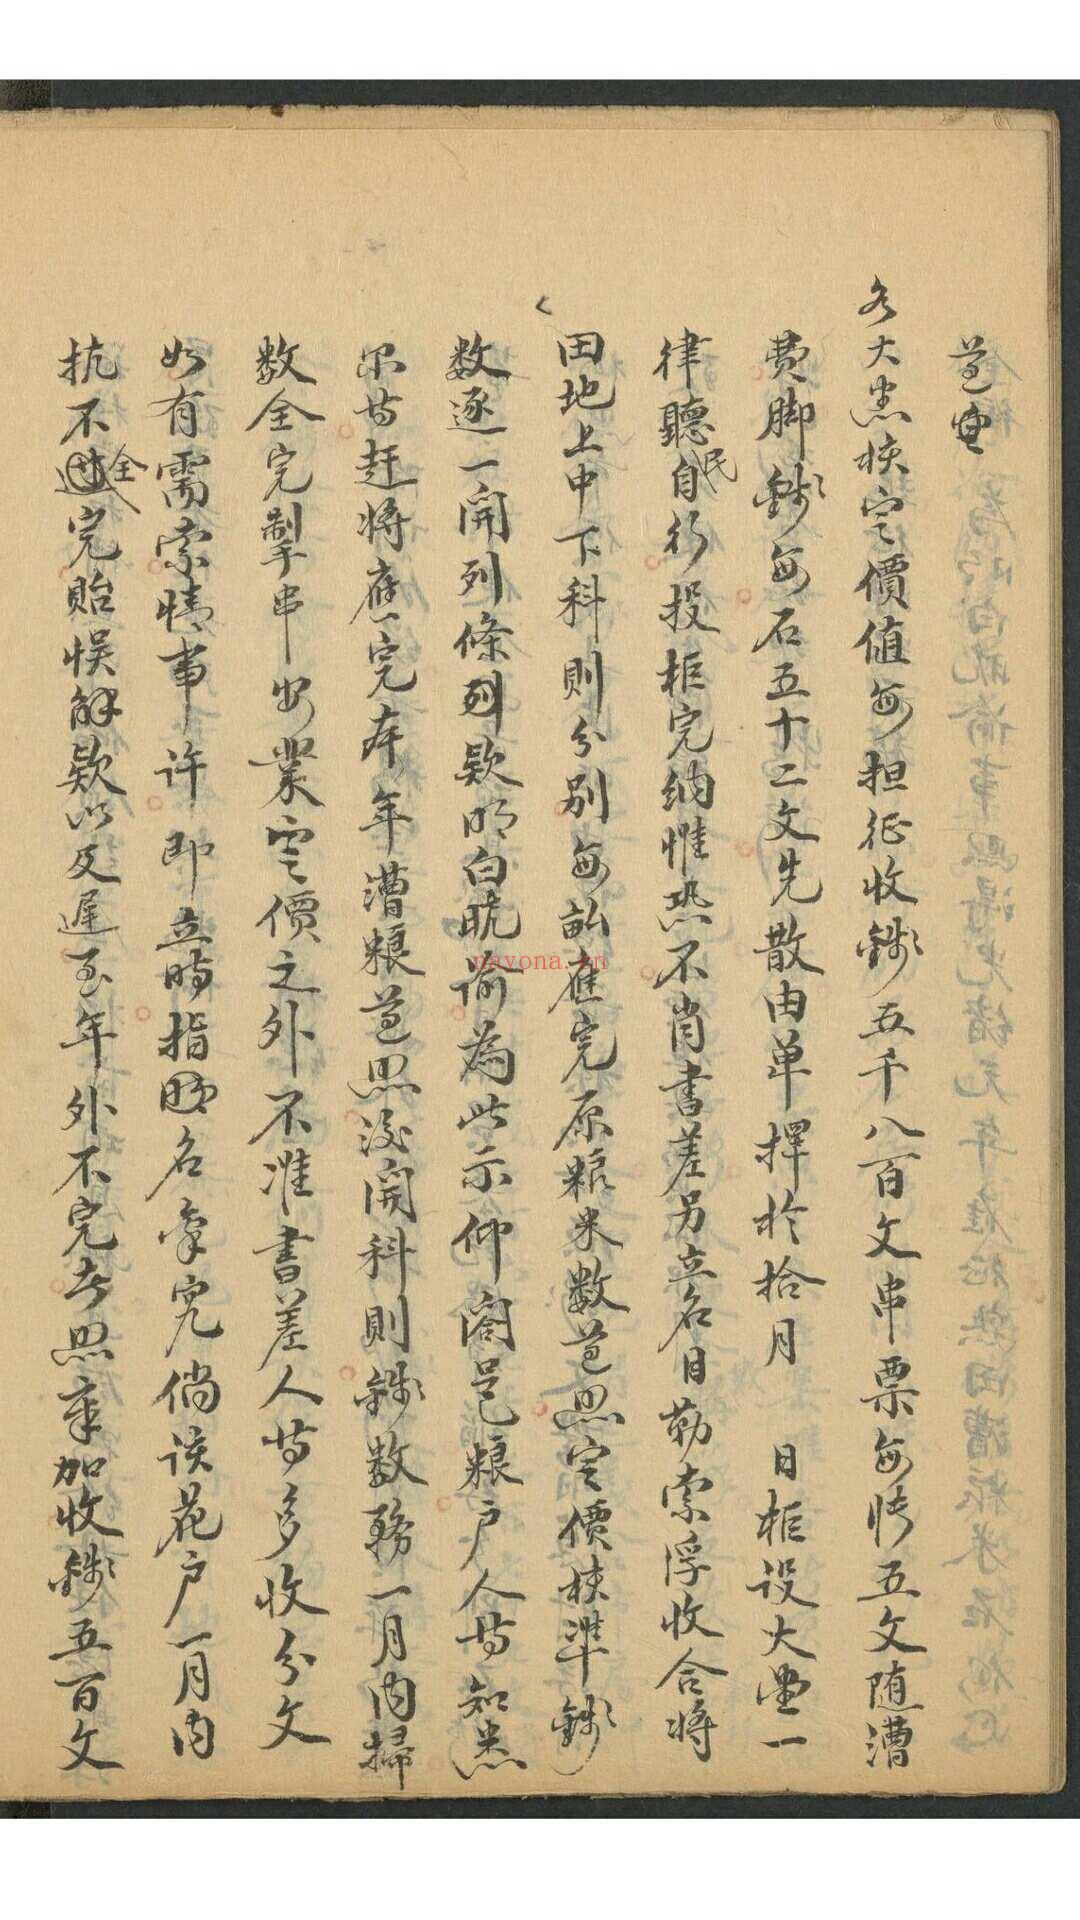 遵奉
各大憲核定價值每担征收錢五千八百文串票每張五文随漕
費脚錢每石五十二文先散由单擇於拾月 日柜设大堂一
律聽民自行投柜完纳惟恐不肖書差另立名目勒索浮收合將
田地上中下科則分别每畝應完原粮米数遵照定價核準錢
数逐一開列條列欵明白眺諭為此示仰阖邑粮户人等知悉
尔等赶將應完本年漕粮遵照後開科則錢数務一月內掃
数全完掣串安業定價之外不准書差人等多收分文
如有需索情事许即立時指名禀究倘该花户一月内
抗不全完貽悮解欵以及遲至年外不完者照章加收錢五百文
nayona.cn